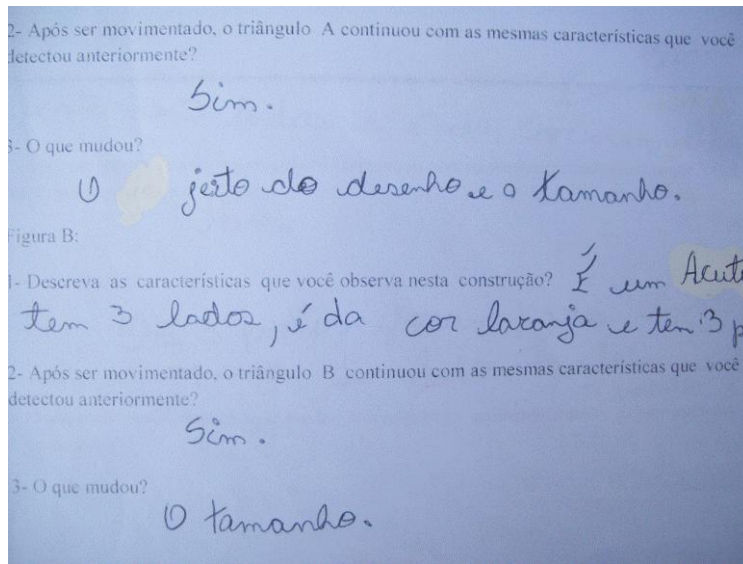 2- Após ser movimentado, o triângulo A continuou com as mesmas características que você
detectou anteriormente?
Sim.
3- O que mudou?
O jeito do desenho e o tamanho.
Figura B:
1- Descreva as características que você observa nesta construção? É um
tem 3 lados, é da cor laranja e tem 3
2- Após ser movimentado, o triângulo B continuou com as mesmas características que você
detectou anteriormente?
Sim.
3- O que mudou?
O tamanho.